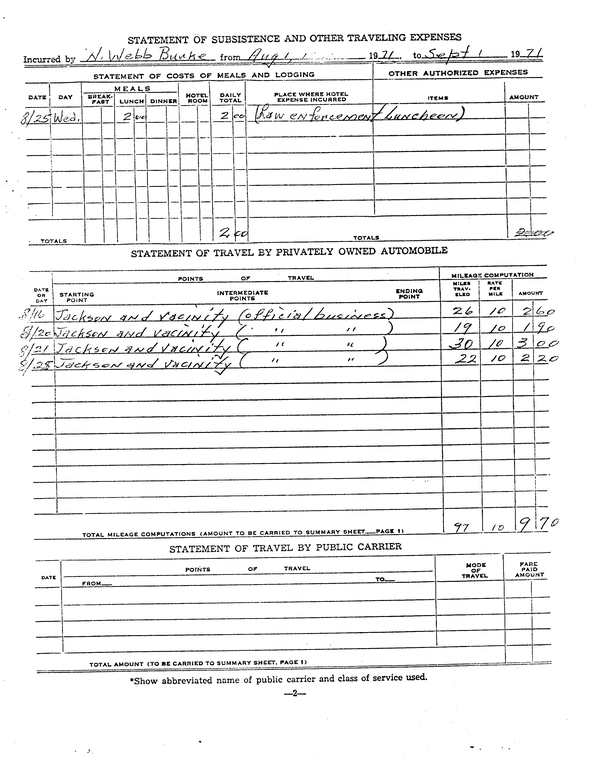 STATEMENT OF SUBSISTENCE AND OTHER TRAVELING EXPENSES
Incurred by N. Webb Burke from Aug 1, 1971 to Sept 1 1971
STATEMENT OF COSTS OF MEALS AND LODGING OTHER AUTHORIZED EXPENSES
DATE DAY MEALS BREAK-FAST LUNCH DINNER HOTEL ROOM DAILY TOTAL PLACE WHERE HOTEL EXPENSE INCURRED ITEMS AMOUNT
8/25 Wed. 2 00 2 00 (Law enforcement Luncheon)
TOTALS 2 00 TOTALS 2 00
STATEMENT OF TRAVEL BY PRIVATELY OWNED AUTOMOBILE
POINTS OF TRAVEL MILEAGE COMPUTATION
DATE OR DAY STARTING POINT INTERMEDIATE POINTS ENDING POINT MILES TRAV-ELED RATE PER MILE AMOUNT
8/16 Jackson and vacinity (official business) 26 10 2 60
8/20 Jackson and vacinity ( " " ) 19 10 1 90
8/21 Jackson and vacinity ( " " ) 30 10 3 00
8/28 Jackson and vacinity ( " " ) 22 10 2 20
TOTAL MILEAGE COMPUTATIONS (AMOUNT TO BE CARRIED TO SUMMARY SHEET PAGE 1) 97 10 9 70
STATEMENT OF TRAVEL BY PUBLIC CARRIER
DATE POINTS OF TRAVEL MODE OF TRAVEL FARE PAID AMOUNT
FROM TO
TOTAL AMOUNT (TO BE CARRIED TO SUMMARY SHEET, PAGE 1)
*Show abbreviated name of public carrier and class of service used.
—2—